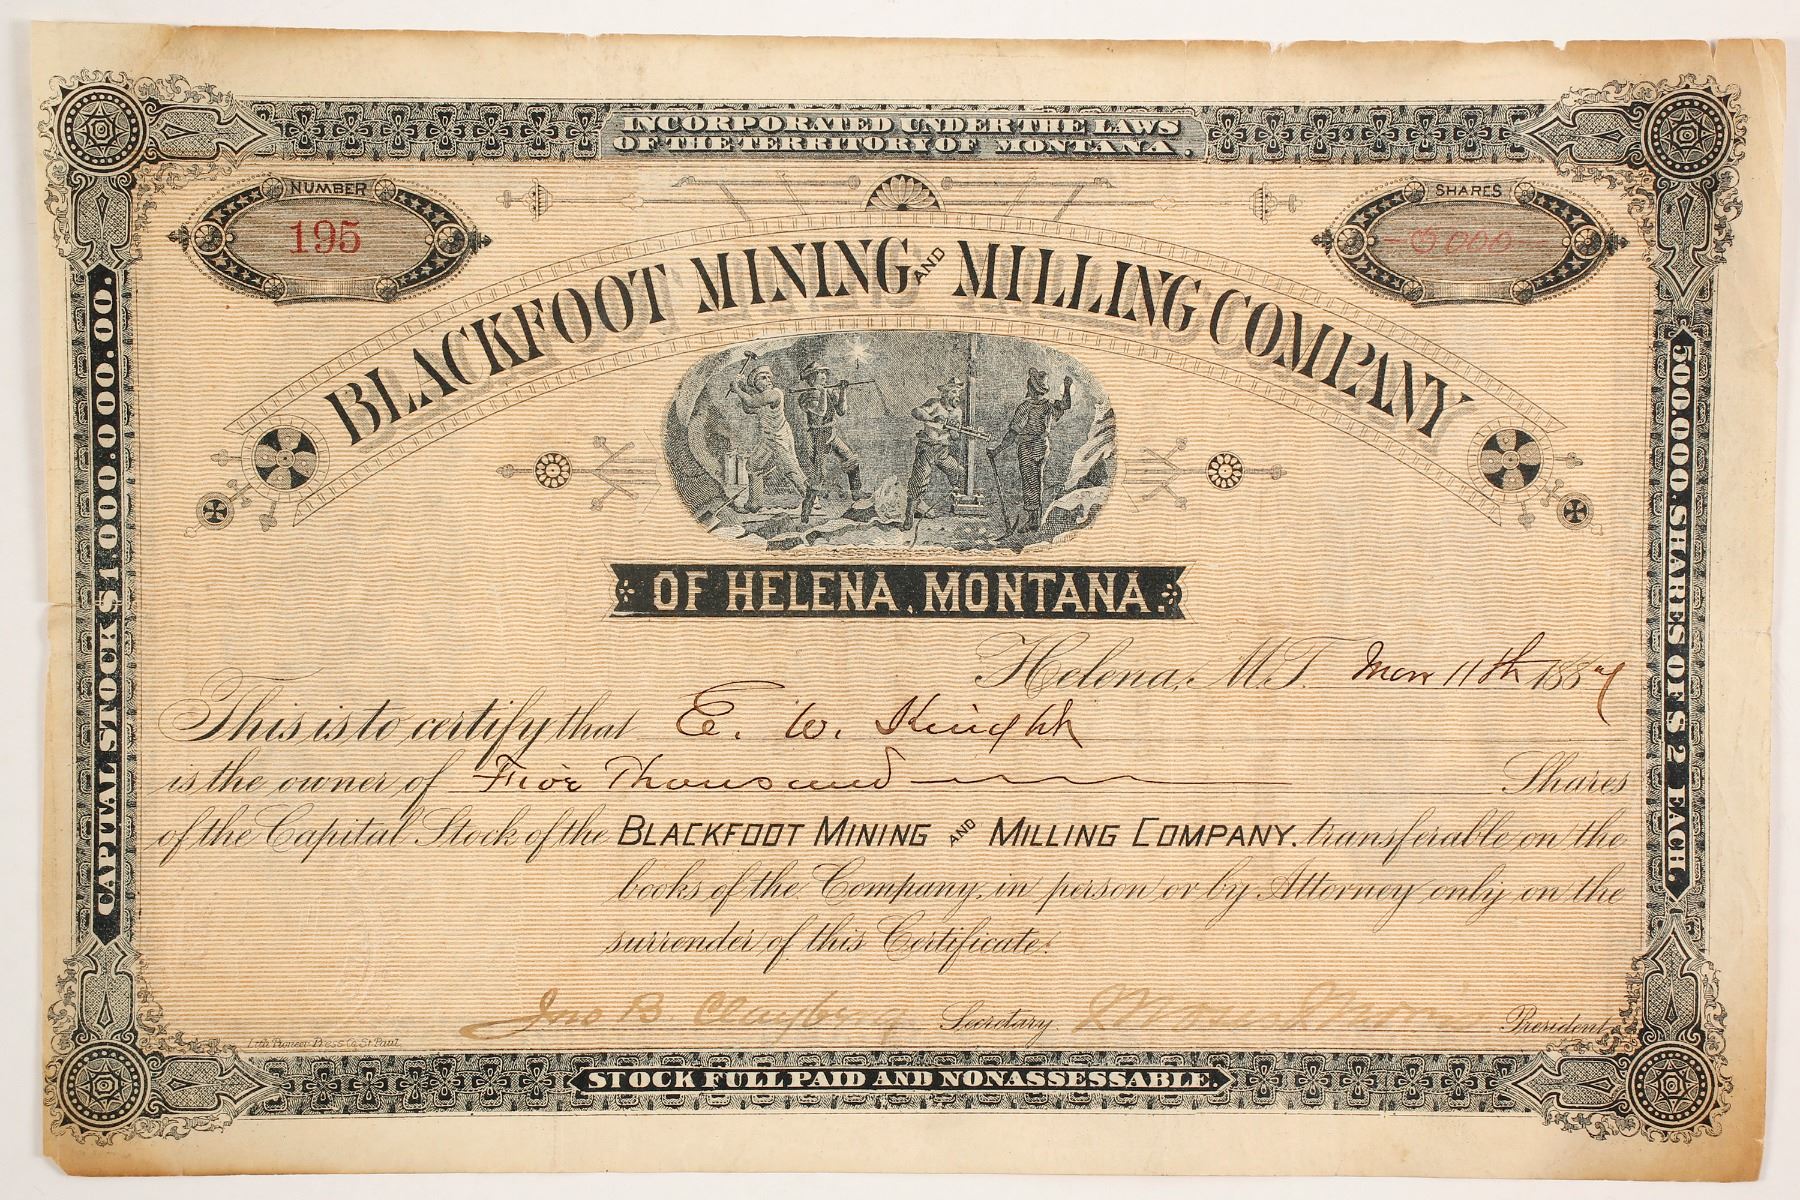 INCORPORATED UNDER THE LAWS
OF THE TERRITORY OF MONTANA.
NUMBER
195
SHARES
5000
BLACKFOOT MINING AND MILLING COMPANY
OF HELENA, MONTANA.
Helena, M.T. 188
This is to certify that E. W. Knight
is the owner of Five Thousand Shares
of the Capital Stock of the BLACKFOOT MINING AND MILLING COMPANY. transferable on the
books of the Company, in person or by Attorney only on the
surrender of this Certificate.
Jno B. Clayberg Secretary President
Lith Pioneer Press Co. St. Paul
STOCK FULL PAID AND NONASSESSABLE.
CAPITAL STOCK $1.000.000.00.
500.000. SHARES OF $2 EACH.